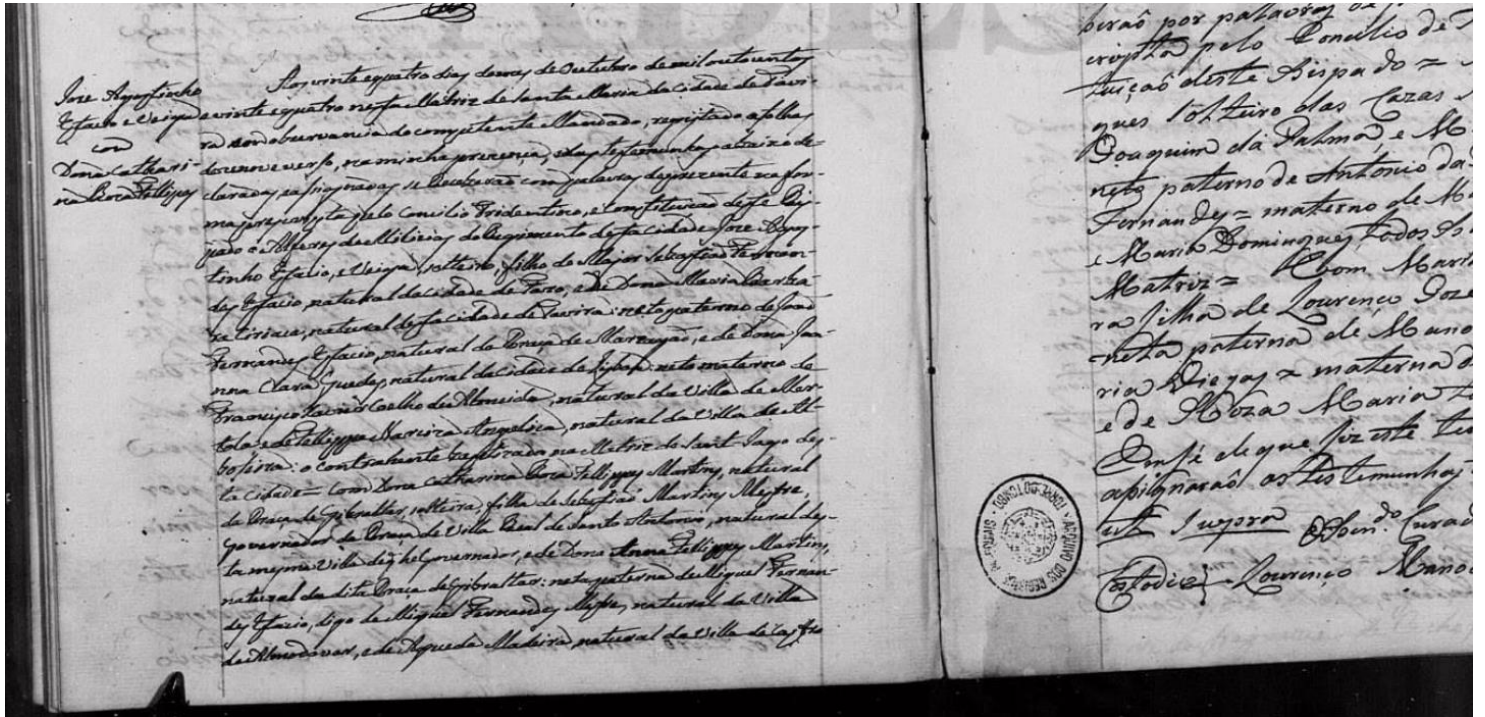 Jose Agostinho
Efacio e Veiga
com
Dona Cathari-
na Roza Fellippes
Aos vinte e quatro dias do mes de Outubro de mil outo centos
e vinte e quatro nesta Matriz de Santa Maria da Cidade de Tavi-
ra em observancia do competente Mandado, registado a folhas
dezenove verso, na minha prezença, e das testemunhas abaixo de-
claradas, e asignadas se receberão com palavras de prezente na for-
ma prescripta pelo Concilio Tridentino, e Constituição deste Bis-
pado o Alferes de Milicias do Regimento desta cidade Jose Agos-
tinho Efacio, e Veiga, solteiro, filho do Major Sebastião Fernan-
des Efacio, natural da Cidade de Farro, e de Dona Maria Barba-
ra Ciriaca, natural desta cidade de Tavira: neto paterno de João
Fernandes Efacio, natural da Praça de Mazagão, e de Dona Joa-
nna Clara Guedes, natural da Cidade de Lisboa: neto materno de
Francisco Xavier Coelho de Almeida, natural da Villa de Mer-
tola, e de Fellippa Narciza Angelica, natural da Villa de Al-
bofeira: o contrahente baptizado na Matriz de Sant-Iago des-
ta cidade = Com Dona Catharina Roza Fellippes Martins, natural
da Praça de Gibraltar, solteira, filha de Sebastião Martins Mestre,
Governador da Praça de Villa Real de Santo Antonio, natural des-
ta mesma Villa de q he Governador, e de Dona Anna Fellippes Martins,
natural da dita Praça de Gibraltar: neta paterna de Miguel Fernan-
des Efacio, digo de Miguel Fernandes Mestre, natural da Villa
de Almodovar, e de Agueda Madeira, natural da Villa de Castro
berão por palavras de
cripta pelo Concilio de
tuição deste Bispado =
ques Solteiro das Cazas
Joaquim da Palma, e M
neto paterno de Antonio da
Fernandes = materno de Ma
e Maria Domingues todos
Matriz = Com Maria
ra filha de Lourenço Goze
neta paterna de Mano
ria Viegas = materna d
e de Roza Maria to
Em fé de que fiz este te
asignarão as testemunhas
ut Supra Curad
Custodio Lourenço Mano
TORRE DO TOMBO · ARQUIVO DOS REGISTOS PAROQUIAIS